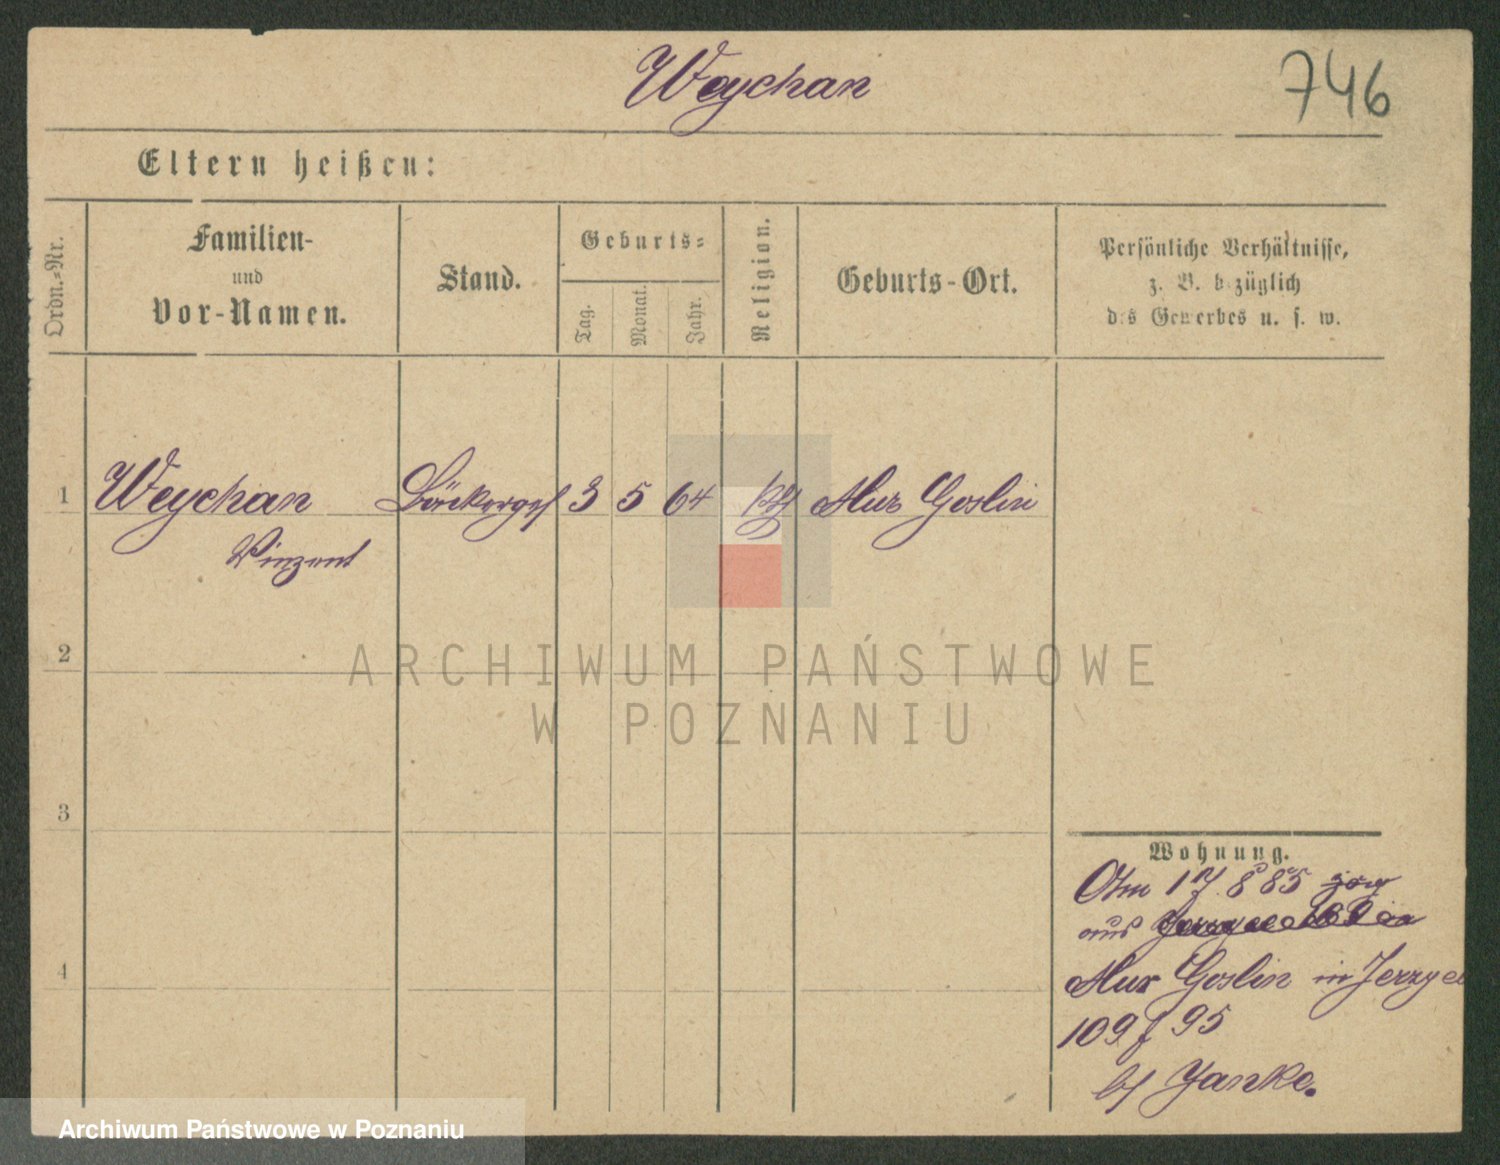 Weychan
746
Eltern heißen:
Ordn.-Nr.
Familien-
und
Vor-Namen.
Stand.
Geburts-
Tag.
Monat.
Jahr.
Religion.
Geburts-Ort.
Persönliche Verhältnisse,
z. B. bezüglich
des Gewerbes u. s. w.
1 Weychan Bäckerges 3 5 64 kth Mur Goslin
Vinzent
2
3
4
Wohnung.
Am 17 8 85 zog
aus
Mur Goslin in Jerzyce
109 f 95
b/ Janke.
ARCHIWUM PAŃSTWOWE
W POZNANIU
Archiwum Państwowe w Poznaniu